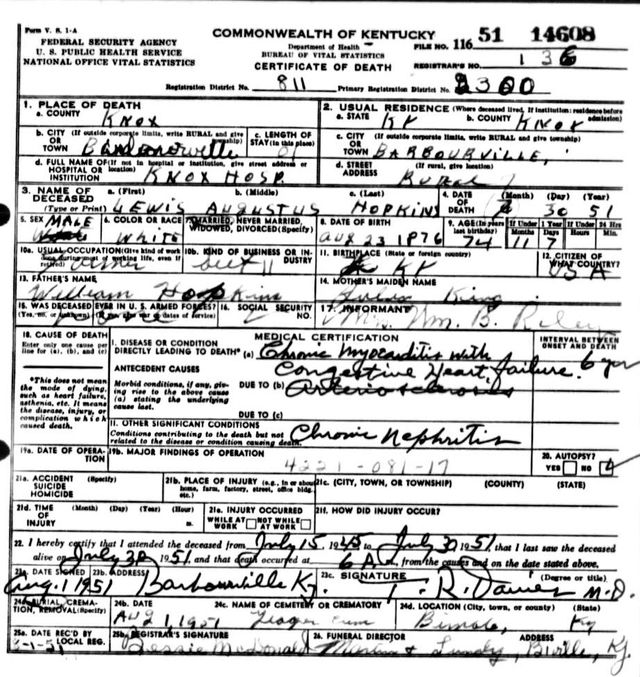 Form V. S. 1-A
FEDERAL SECURITY AGENCY
U. S. PUBLIC HEALTH SERVICE
NATIONAL OFFICE VITAL STATISTICS
COMMONWEALTH OF KENTUCKY
Department of Health
BUREAU OF VITAL STATISTICS
CERTIFICATE OF DEATH
FILE NO. 116 51 14608
REGISTRAR'S NO. 136
Registration District No. 811 Primary Registration District No. 2300
1. PLACE OF DEATH
a. COUNTY KNOX
b. CITY (If outside corporate limits, write RURAL and give township) OR TOWN
c. LENGTH OF STAY (in this place)
d. FULL NAME OF (If not in hospital or institution, give street address or location) HOSPITAL OR INSTITUTION KNOX HOSP.
2. USUAL RESIDENCE (Where deceased lived, If institution: residence before admission)
a. STATE KY b. COUNTY KNOX
c. CITY (If outside corporate limits, write RURAL and give township) OR TOWN BARBOURVILLE,
d. STREET ADDRESS (If rural, give location) RURAL
3. NAME OF DECEASED (Type or Print) a. (First) b. (Middle) c. (Last)
LEWIS AUGUSTUS HOPKINS
4. DATE OF DEATH (Month) (Day) (Year) 30 51
5. SEX MALE
6. COLOR OR RACE WHITE
7. MARRIED, NEVER MARRIED, WIDOWED, DIVORCED (Specify)
8. DATE OF BIRTH AUG 23 1876
9. AGE (In years last birthday) 74 If Under 1 Year Months 11 Days 7 If Under 24 Hrs Hours Min.
10a. USUAL OCCUPATION (Give kind of work done during most of working life, even if retired)
10b. KIND OF BUSINESS OR INDUSTRY
11. BIRTHPLACE (State or foreign country) KY
12. CITIZEN OF WHAT COUNTRY? USA
13. FATHER'S NAME William Hopkins
14. MOTHER'S MAIDEN NAME King
15. WAS DECEASED EVER IN U. S. ARMED FORCES? (Yes, no, or unknown) (If yes, give war or dates of service)
16. SOCIAL SECURITY NO.
17. INFORMANT Mrs. Wm. B. Riley
18. CAUSE OF DEATH
Enter only one cause per line for (a), (b), and (c)
*This does not mean the mode of dying, such as heart failure, asthenia, etc. It means the disease, injury, or complication which caused death.
MEDICAL CERTIFICATION
INTERVAL BETWEEN ONSET AND DEATH
I. DISEASE OR CONDITION DIRECTLY LEADING TO DEATH* (a) Chronic Myocarditis with
Congestive Heart Failure. 6 yrs
ANTECEDENT CAUSES
Morbid conditions, if any, giving rise to the above cause (a) stating the underlying cause last.
DUE TO (b) Arteriosclerosis
DUE TO (c)
II. OTHER SIGNIFICANT CONDITIONS
Conditions contributing to the death but not related to the disease or condition causing death. Chronic Nephritis
19a. DATE OF OPERATION
19b. MAJOR FINDINGS OF OPERATION
4221-081-17
20. AUTOPSY? YES NO
21a. ACCIDENT SUICIDE HOMICIDE (Specify)
21b. PLACE OF INJURY (e.g., in or about home, farm, factory, street, office bldg. etc.)
21c. (CITY, TOWN, OR TOWNSHIP) (COUNTY) (STATE)
21d. TIME OF INJURY (Month) (Day) (Year) (Hour)
21e. INJURY OCCURRED WHILE AT WORK NOT WHILE AT WORK
21f. HOW DID INJURY OCCUR?
22. I hereby certify that I attended the deceased from July 15 1945 to July 30 1951 that I last saw the deceased
alive on July 30 1951, and that death occurred at 6 A m from the causes and on the date stated above.
23a. DATE SIGNED Aug. 1 1951
23b. ADDRESS Barbourville Ky.
23c. SIGNATURE T. R. Davies M.D. (Degree or title)
24a. BURIAL, CREMATION, REMOVAL (Specify)
24b. DATE AUG 1, 1951
24c. NAME OF CEMETERY OR CREMATORY
24d. LOCATION (City, town, or county) (State) Bimble, Ky
25a. DATE REC'D BY LOCAL REG. 8-1-51
25b. REGISTRAR'S SIGNATURE Bessie McDonald
26. FUNERAL DIRECTOR ADDRESS